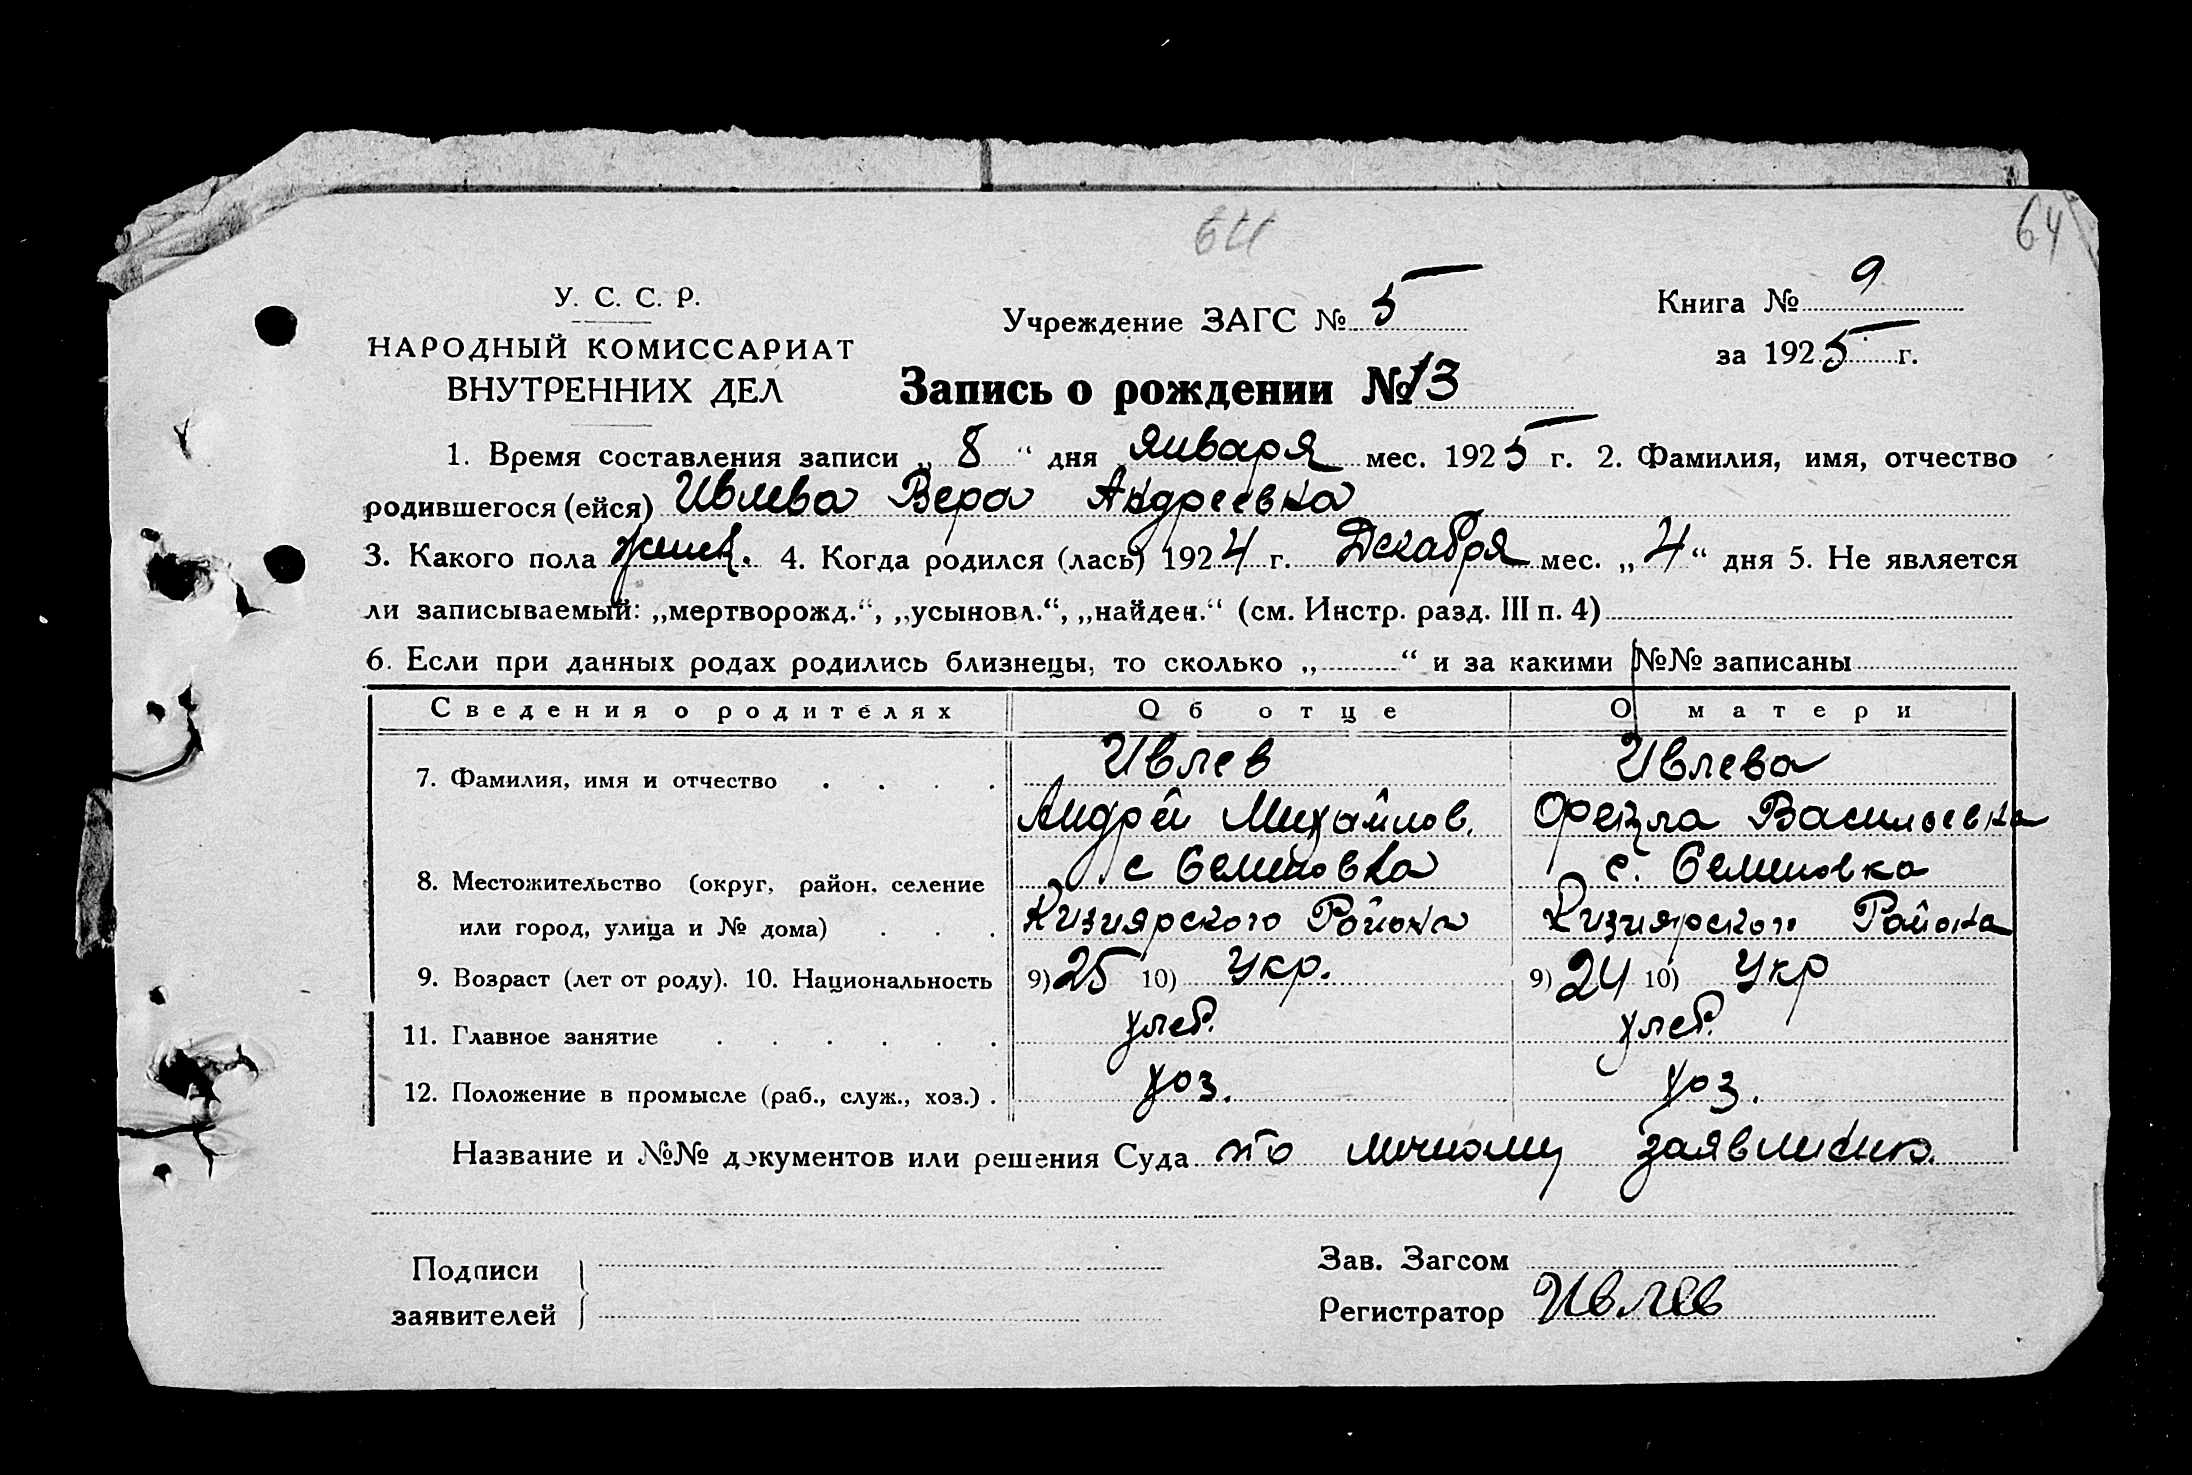 64 64
У. С. С. Р.
НАРОДНЫЙ КОМИССАРИАТ
ВНУТРЕННИХ ДЕЛ
Учреждение ЗАГС № 5
Книга № 9
за 1925 г.
Запись о рождении № 13
1. Время составления записи „ 8 “ дня января мес. 1925 г. 2. Фамилия, имя, отчество
родившегося (ейся) Ивлева Вера Андреевна
3. Какого пола женск. 4. Когда родился (лась) 1924 г. Декабря мес. „ 4 “ дня 5. Не является
ли записываемый: „мертворожд.“, „усыновл.“, „найден.“ (см. Инстр. разд. III п. 4)
6. Если при данных родах родились близнецы, то сколько „ “ и за какими №№ записаны
Сведения о родителях Об отце О матери
Ивлев Ивлева
7. Фамилия, имя и отчество . . . .
Андрей Михайлов. Фекла Васильевна
с Семеновка с. Семеновка
8. Местожительство (округ, район, селение
или город, улица и № дома) . . . Кизиярского Района Кизиярского Района
9. Возраст (лет от роду). 10. Национальность 9) 25 10) Укр. 9) 24 10) Укр
11. Главное занятие . . . . . . хлеб. хлеб.
12. Положение в промысле (раб., служ., хоз.) . хоз. хоз.
Название и №№ документов или решения Суда по личному заявлению.
Подписи
заявителей
Зав. Загсом
Регистратор Ивлев